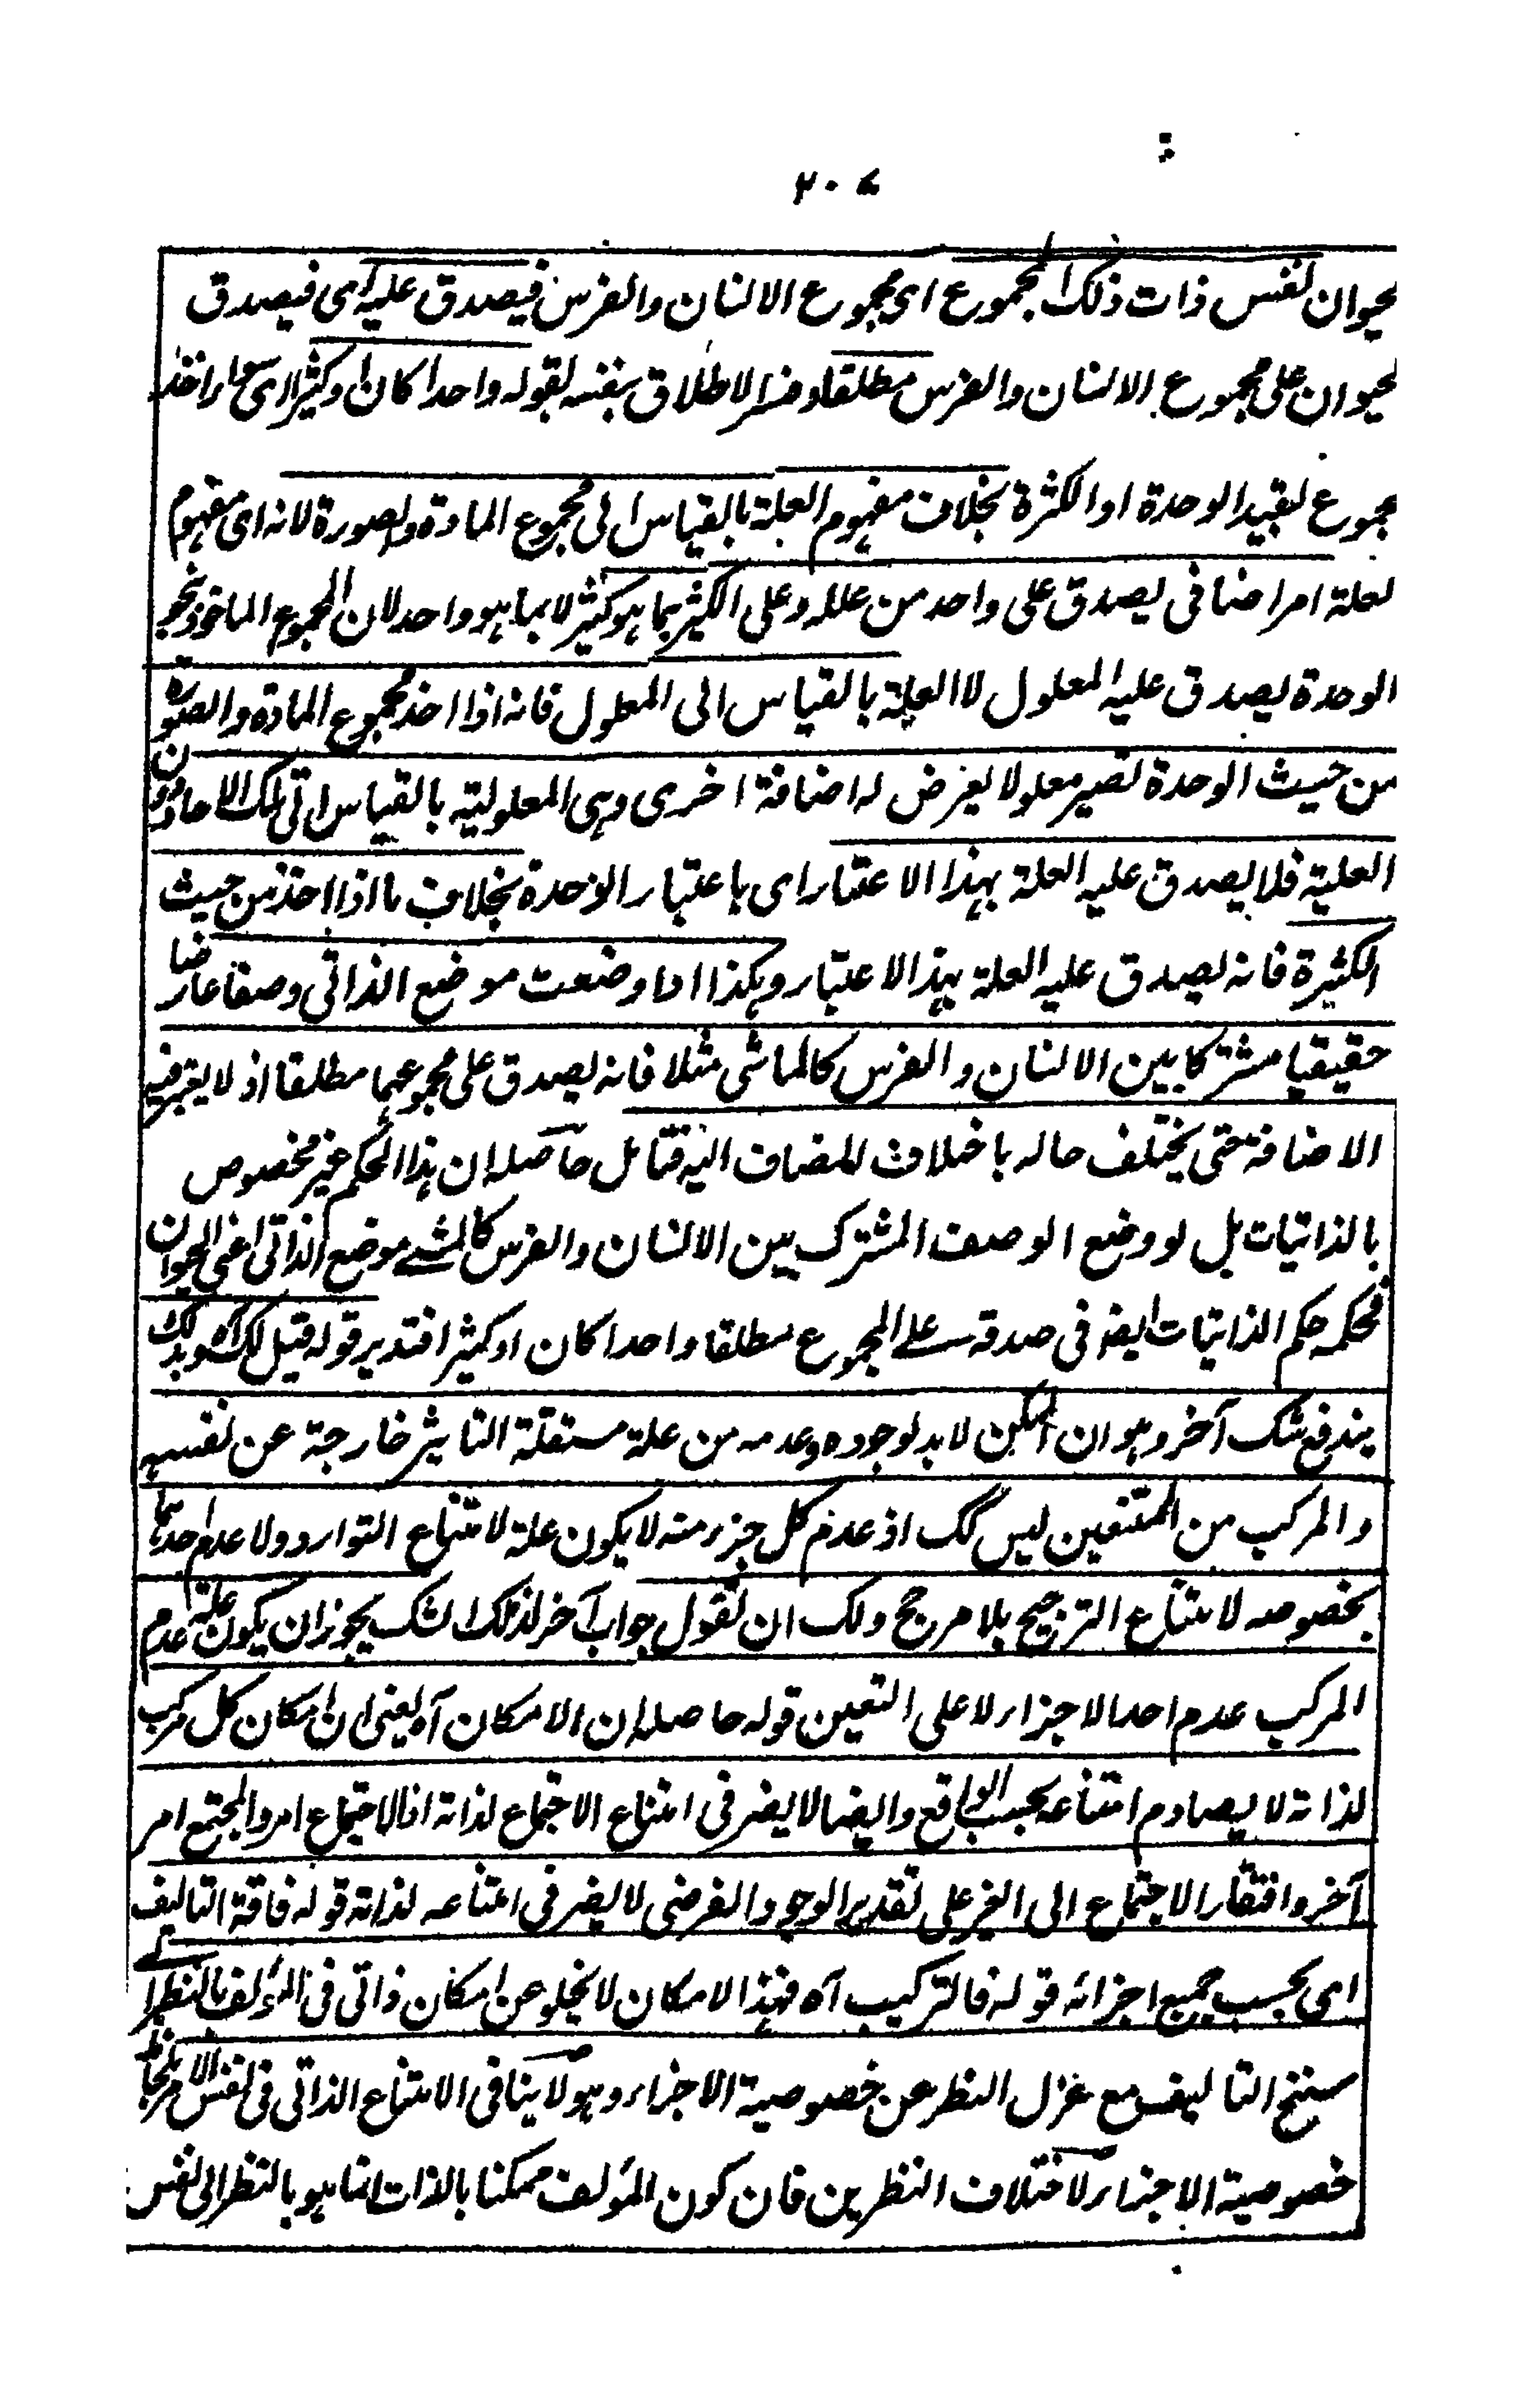 ٢٠٧
لحيوان لنفس ذات ذلك المجموع اى مجموع الانسان والفرس فيصدق عليه اى فيصدق
لحيوان على مجموع الانسان والفرس مطلقا وفسر الاطلاق بنفسه لقوله واحدا كان او كثيرا اى سواء اخذ
مجموع بقيد الوحدة او الكثرة بخلاف مفهوم العلة بالقياس الى مجموع المادة والصورة لانه اى مفهوم
لعلة امر اضافى يصدق على واحد من علله وعلى الكثير بما هو كثير لا بما هو واحد لان المجموع الماخوذ بنحو
الوحدة يصدق عليه المعلول لا العلة بالقياس الى المعلول فانه اذا اخذ مجموع المادة والصورة
من حيث الوحدة تصير معلولا يعرض له اضافة اخرى وهى المعلولية بالقياس الى تلك الاحاد دون
العلية فلا يصدق عليه العلة بهذا الاعتبار اى باعتبار الوحدة بخلاف ما اذا اخذ من حيث
الكثيرة فانه يصدق عليه العلة بهذا الاعتبار وهكذا اذا وضعت موضع الذاتى وصفا عارضا
حقيقيا مشتركا بين الانسان والفرس كالماشى مثلا فانه يصدق على مجموعهما مطلقا اذ لا يعتبر فيه
الاضافة حتى يختلف حاله باختلاف المضاف اليه فتامل حاصله ان هذا الحكم غير مخصوص
بالذاتيات بل لو وضع الوصف المشترك بين الانسان والفرس كالمشے موضع الذاتى اعنى الحيوان
فحكمه حكم الذاتيات ايضا فى صدقه علے المجموع مطلقا واحدا كان او كثيرا فتدبر قوله قيل لك آه وبذلك
يندفع شك آخر وهو ان الممكن لا بد لوجوده وعدمه من علة مستقلة التاثير خارجة عن نفسه
والمركب من الممتنعين ليس كك اذ عدم كل جزء منه لا يكون علة لامتناع التوارد ولا عدم احدهما
بخصوصه لامتناع الترجيح بلا مرجح ولك ان تقول جواب آخر لذلك الشك يجوز ان يكون علة عدم
المركب عدم احد الاجزاء لا على التعين قوله حاصله ان الامكان آه يعنى ان امكان كل مركب
لذاته لا يصادم امتناعه بحسب الواقع وايضا لا يضر فى امتناع الاجتماع لذاته اذ الاجتماع امر والمجتمع امر
آخر وافتقار الاجتماع الى الغير على تقدير الوجود الفرضى لا يضر فى امتناعه لذاته قوله فاقة التاليف
اى بحسب جميع اجزائه قوله فالتركيب آه فهذا الامكان لا يخلو عن امكان ذاتى فى المؤلف بالنظر الے
سنخ التاليف مع عزل النظر عن خصوصية الاجزاء وهو لا ينافى الامتناع الذاتى فى نفس الامر بلحاظ
خصوصية الاجزاء لاختلاف النظرين فان كون المؤلف ممكنا بالذات انما هو بالنظر الى نفس